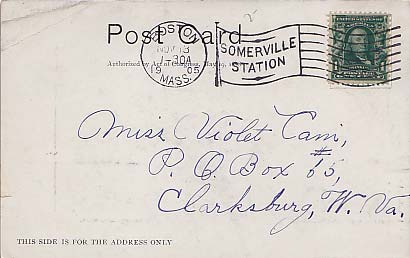 Post Card
Authorized by Act of Congress, May 19,
BOSTON
NOV 13
-30A
19 05
MASS.
SOMERVILLE
STATION
Miss Violet Cam,
P. O. Box #65,
Clarksburg, W. Va.
THIS SIDE IS FOR THE ADDRESS ONLY